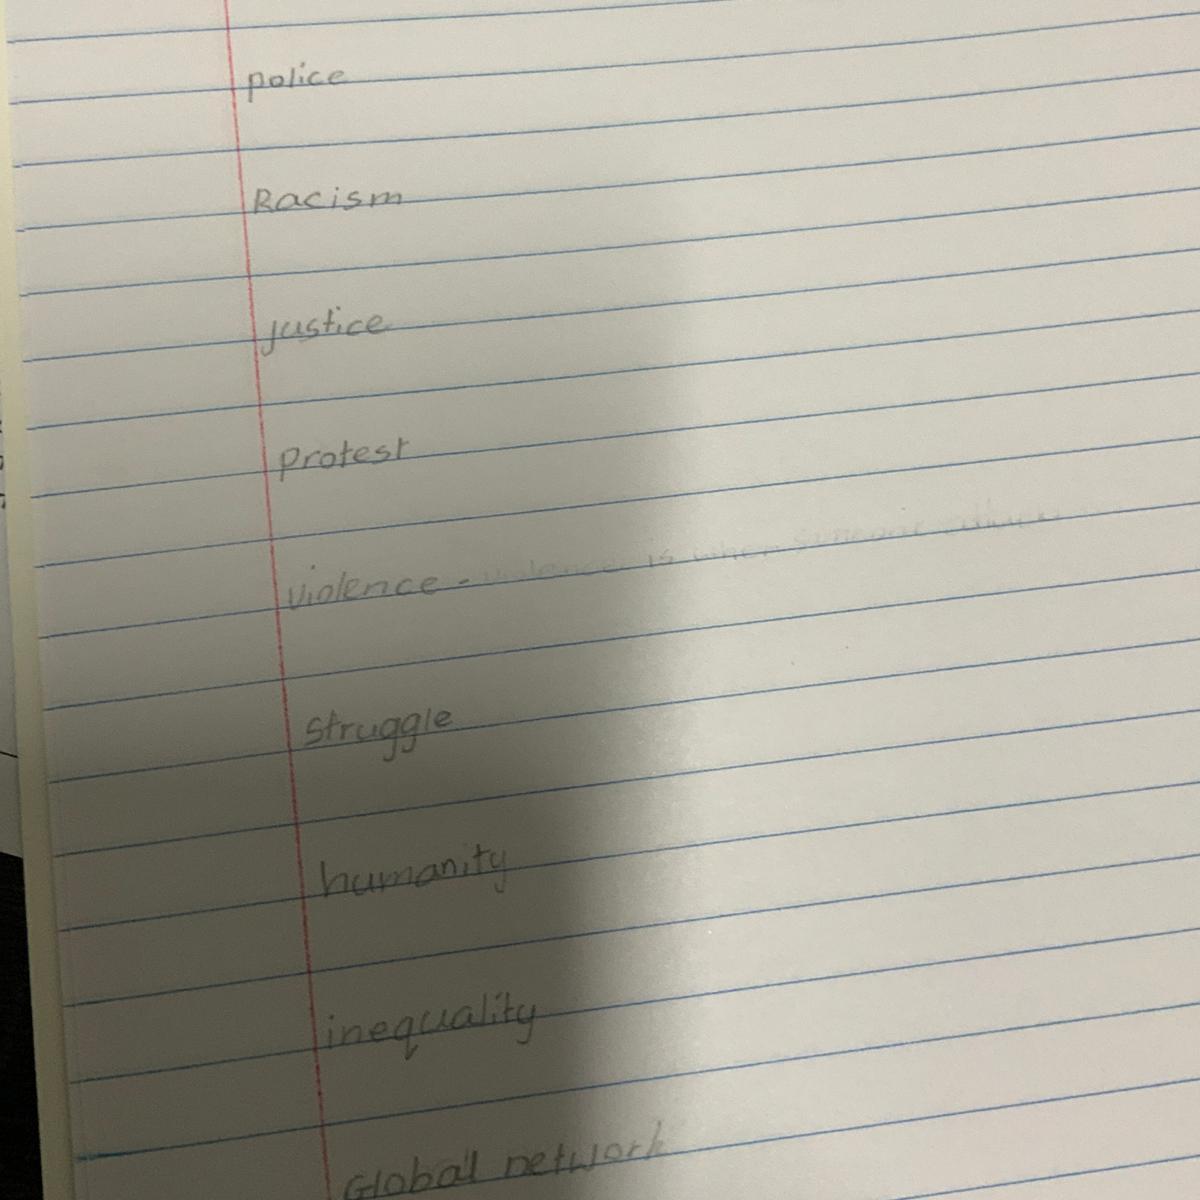 police
Racism
justice
protest
violence - violence is when someone
struggle
humanity
inequality
Global network